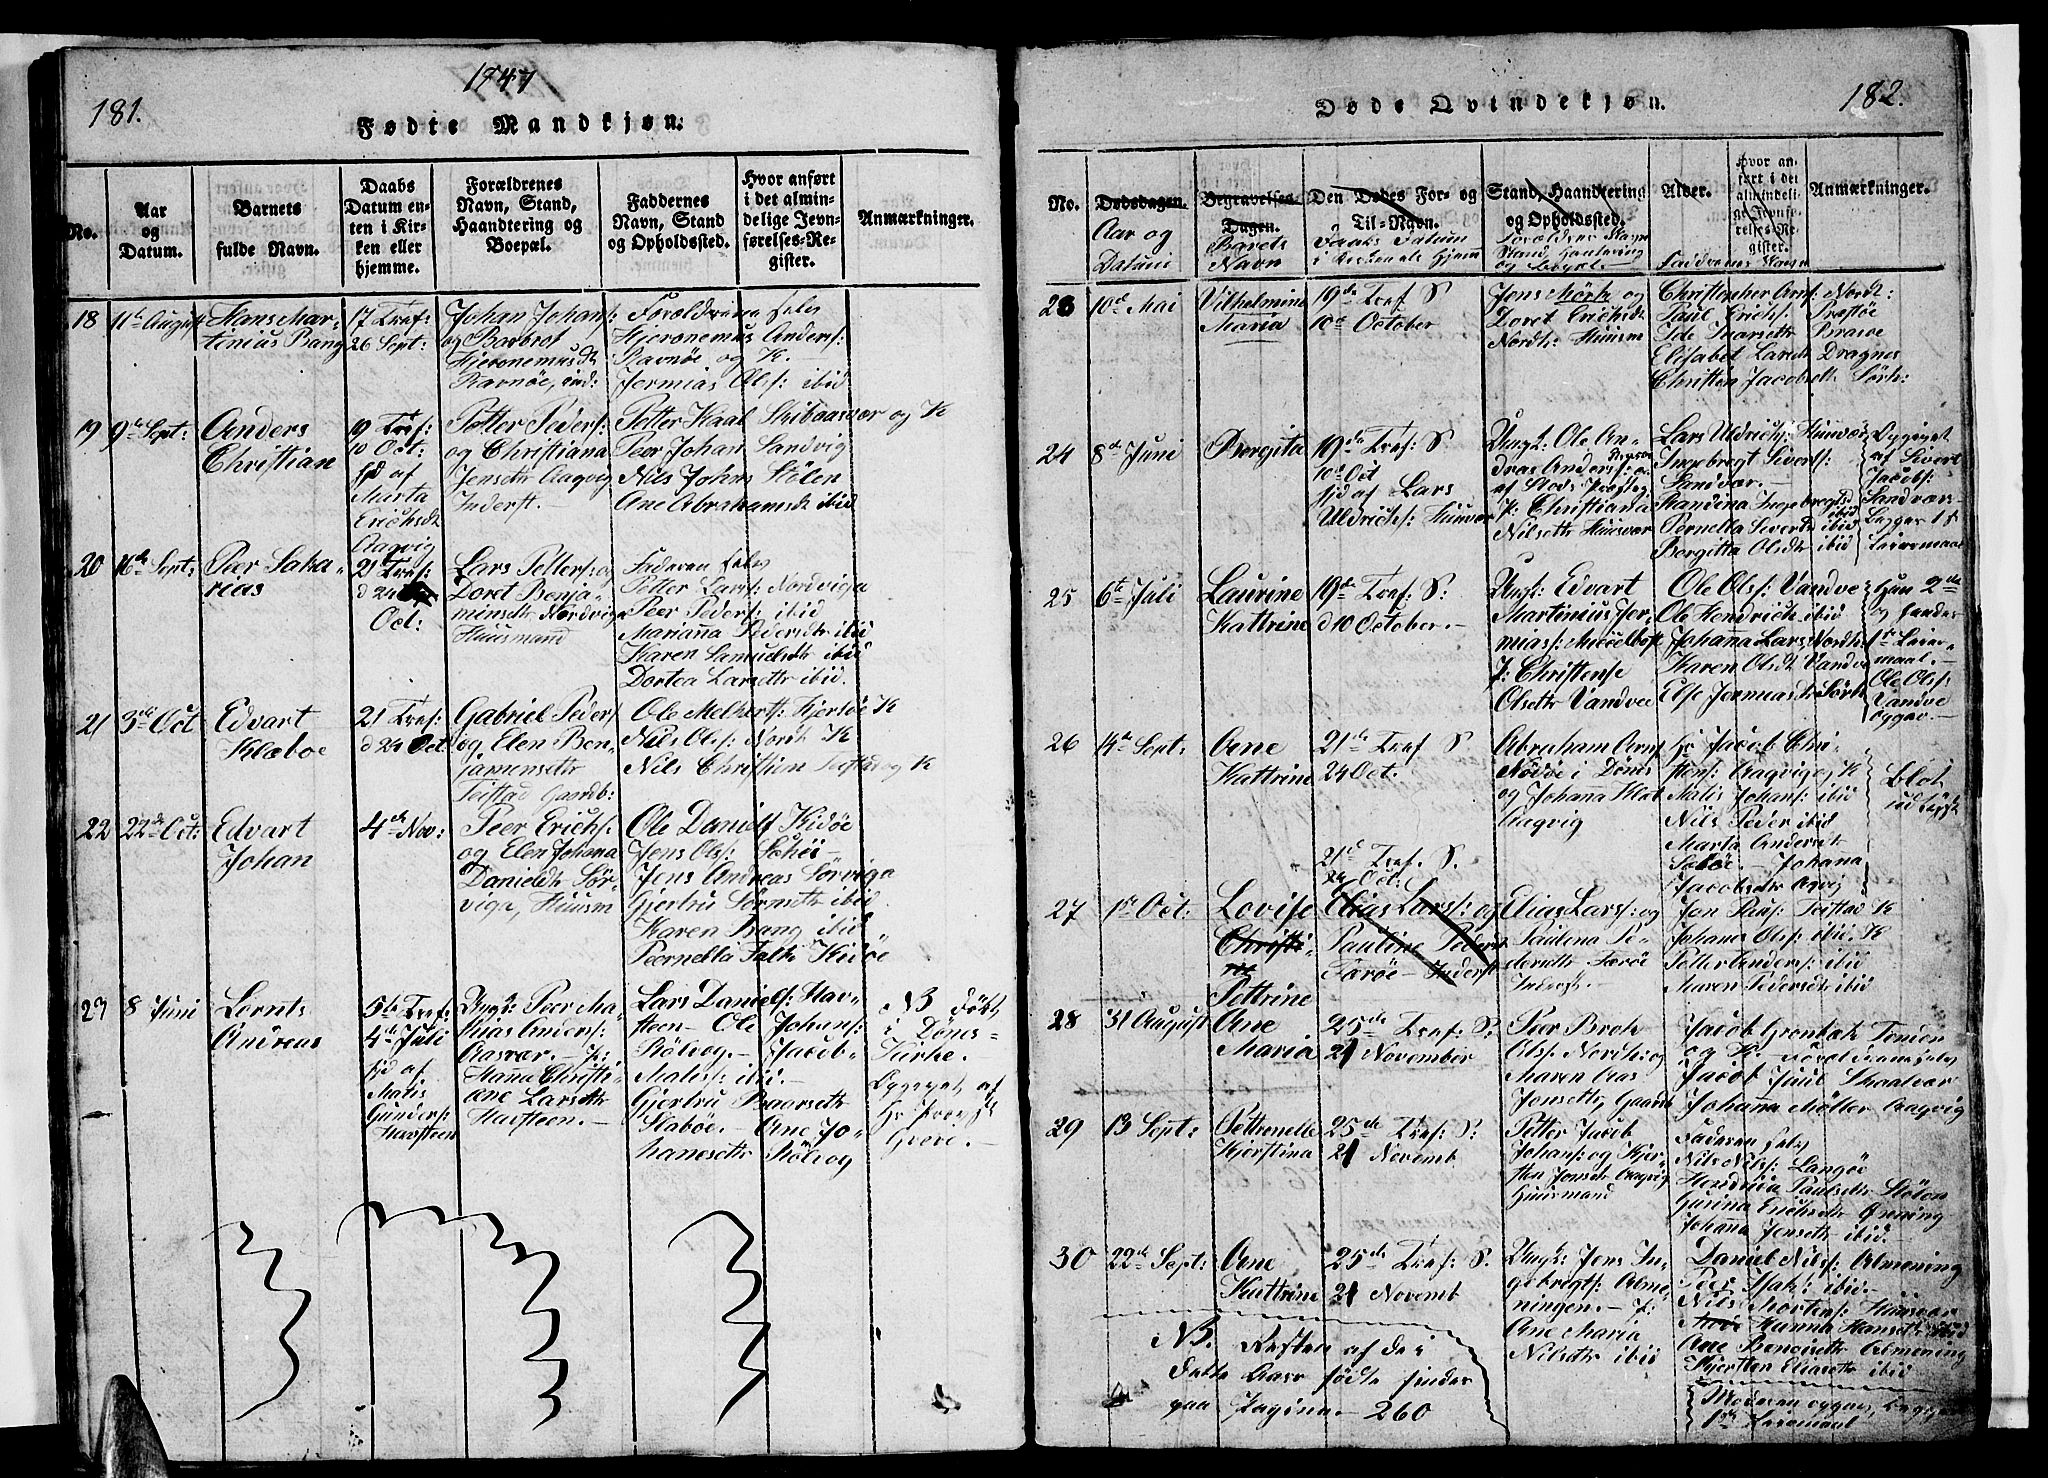 181.
1847
Fødte Mandkjøn.
No.
Aar og Datum.
Barnets fulde Navn.
Daabs Datum enten i Kirken eller hjemme.
Forældrenes Navn, Stand, Haandtering og Boepæl.
Faddernes Navn, Stand og Opholdssted.
Hvor anført i det almindelige Jevnførelses-Register.
Anmærkninger.
18
11te August
Hans Martinius Bang
17 Tref:
26 Sept:
Johan Johans:
og Barbrot
Hjeronemusdt
Ravnøe, ind:
Forældrene selv
Hjeronemus Anders:
Ravnøe og K.
Jermias Ols: ibid
19
9de Sept:
Anders
Christian
19 Tref:
10 Oct:
hd af
Marta
Erichsdt
Aagvig
Petter Peders:
og Christiana
Jensdtr Aagvig
Inderst.
Petter Kaal Skibaasvær og K
Peer Johan Sandvig
Nils Johns Stølen
Ane Abrahamsdt ibid
20
16de Sept:
Peer Saka-
rias
21 Tref:
d 24
Oct:
Lars Petters: og
Doret Benja-
minsdtr Nordvig
Huusmand
Faderen selv
Petter Lars: Nordviga
Peer Peders: ibid
Marianna Pedersdtr ibid
Karen Samuelsdtr ibid
Dortea Larsdtr ibid.
21
3de Oct
Edvart
Klæboe
21 Tref:
d 24 Oct
Gabriel Peders
og Elen Ben-
jamensdtr
Teistad Gaardb:
Ole Melkerts: Hjertøe K
Nils Ols: Nordt K
Nils Christian Teistad og K
22
22de Oct:
Edvart
Johan
4de Nov:
Peer Erichs:
og Elen Johana
Danieldt Sør-
viga, Huusm
Ole Daniels Kidøe
Jens Ols: Søhei
Jens Andreas Sørviga
Gjertru Sørensdtr ibid
Karen Bang ibid
Peernella Falk Kidøe
23
8 Juni
Lornts
Andreas
5te Tref:
4de Juli
hd af
Malis
Gunders:
Havsteen
Ungk: Peer Ma-
thias Anders:
Aasvær. - P:
Hanna Christi-
ane Larsdtr
Havsteen.
Lars Daniels: Hav-
steen - Ole Johans:
Stølvog. - Jacob
Malis: ibid. -
Gjertru Baarsdtr
Slabøe. - Ane Jo-
hanesdtr Stølvog
NB Født
i Dønes-
Kirke.
Opgivet af
Hr Provst
Gvere.
182.
Døde Qvindekjøn.
No.
Dødsdagen.
Aar og
Datum
Begravelses-Dagen.
Barnets
Navn
Den Dødes For- og Til-Navn.
Daabs Datum
i Kirken el: Hjem
Stand, Haandtering og Opholdssted.
Forældres Navn
Stand Hantering
og Boepæl
Alder.
Faddernes Navn
Hvor anført i det almindelige Jevnførelses-Register.
Anmærkninger.
23
10de Mai
Vilhelmine
Maria
19de Tref S
10de October
Jens Mørk og
Doret Erichsdt
Nordt: Huusm
Christopher Arns: Nordt:
Paul Erichs: Præstøe
Ide Marietr Brasøe
Elisabet Larsdt Dragnes
Christin Jacobsdt Sørh:
24
8de Juni
Bergita
19de Tref: S.
10de Oct
hd af Lars
Uldrichs: Huusvær
Ungk: Ole An-
dreas Anders:
P: Christiana
Nilsdtr Huusvær
Lars Uldrichs: Huusvær
Ingebregt Sivers:
Sandvær.
Randina Ingebregtsd ibid
Pernella Siverts ibid
Bergitta Olsdtr ibid
Opgivet
af Sivert
Jacobs:
Sandvær
Begges 1ste
Leiermaal
25
6te Juli
Laurine
Kattrine
19de Tref: S.
d 10 October.
Ungk: Edvart
Martinius Jer-
mias:
P: Christense
Olsdtr Vandvee
Ole Ols: Vandve
Ole Hendrich ibid
Johanna Lars Nordh
Karen Olsdt Vandve
Else Jermiasdt Sørh
Hun 2de
og fandes
1te Leier-
maal.
Ole Ols:
Vandve
opgav.
26
14de Sept:
Ane
Kattrine
21de Tref S.
24 Oct.
Abraham Arns
Nodøe i Dønes
og Johanna Klat
Aagvig
Hr Jacob Chri-
stens: Aagvig og K
Malis Johans: ibid
Nils Peder ibid
Marta Andersdt
Slabøe. - Johana
Jacobsdtr Aagvig
Blot
27
1te Oct:
Lovise
Christi-
ne
Pettrine
21de Tref. S.
24 Oct:
Elias Lars: og
Pauline Peders
Færøe - Inderst
Elias Lars: og
Paulena Pe-
dersdtr Færøe
Inderst.
Jon Pauls: Teistad K
Johanes Ols: ibid. K
Petter Anders: ibid
Maren Pedersdt ibid
28
31 August
Ane
Maria
25de Tref: S.
21 November
Peer Broh
Ols: Nordh: og
Maren Aas
Jensdtr Gaardb
Jacob Grønbek Tenien
og K.
Jacob Juul Skaalvær
Johanna Møller Aagvig
29
13 Sept:
Pettrnelle
Kjerstina
25de Tref: S:
21 Novemb
Petter Jacob
Johans: og Kjer-
sten Jensdt Aagvig
Huusmand
Faderen selv
Nils Nils: Langøe
Hendricka Paulsdtr Stølen
Gurina Erichsdtr Ønning
Johanna Jensdtr ibid.
30
22de Sept:
Ane
Kattrine
25de Tref: S.
21 Novemb
Ungk: Jens In-
gebregts: Alme-
ningen. - P:
Ane Maria
Nilsdtr ibid
Daniel Nils: Almening
Peer Isak: ibid.
Nils Mortens: Huusvær
Hanna Hansdt ibid
Ane Bencisdtr Almening
Kjersten Eliasdtr ibid
Moderen opgiver, begges
1ste Leiermaal
NB. Resten af de i
dette Aar fødte findes
paa Pagina - 260